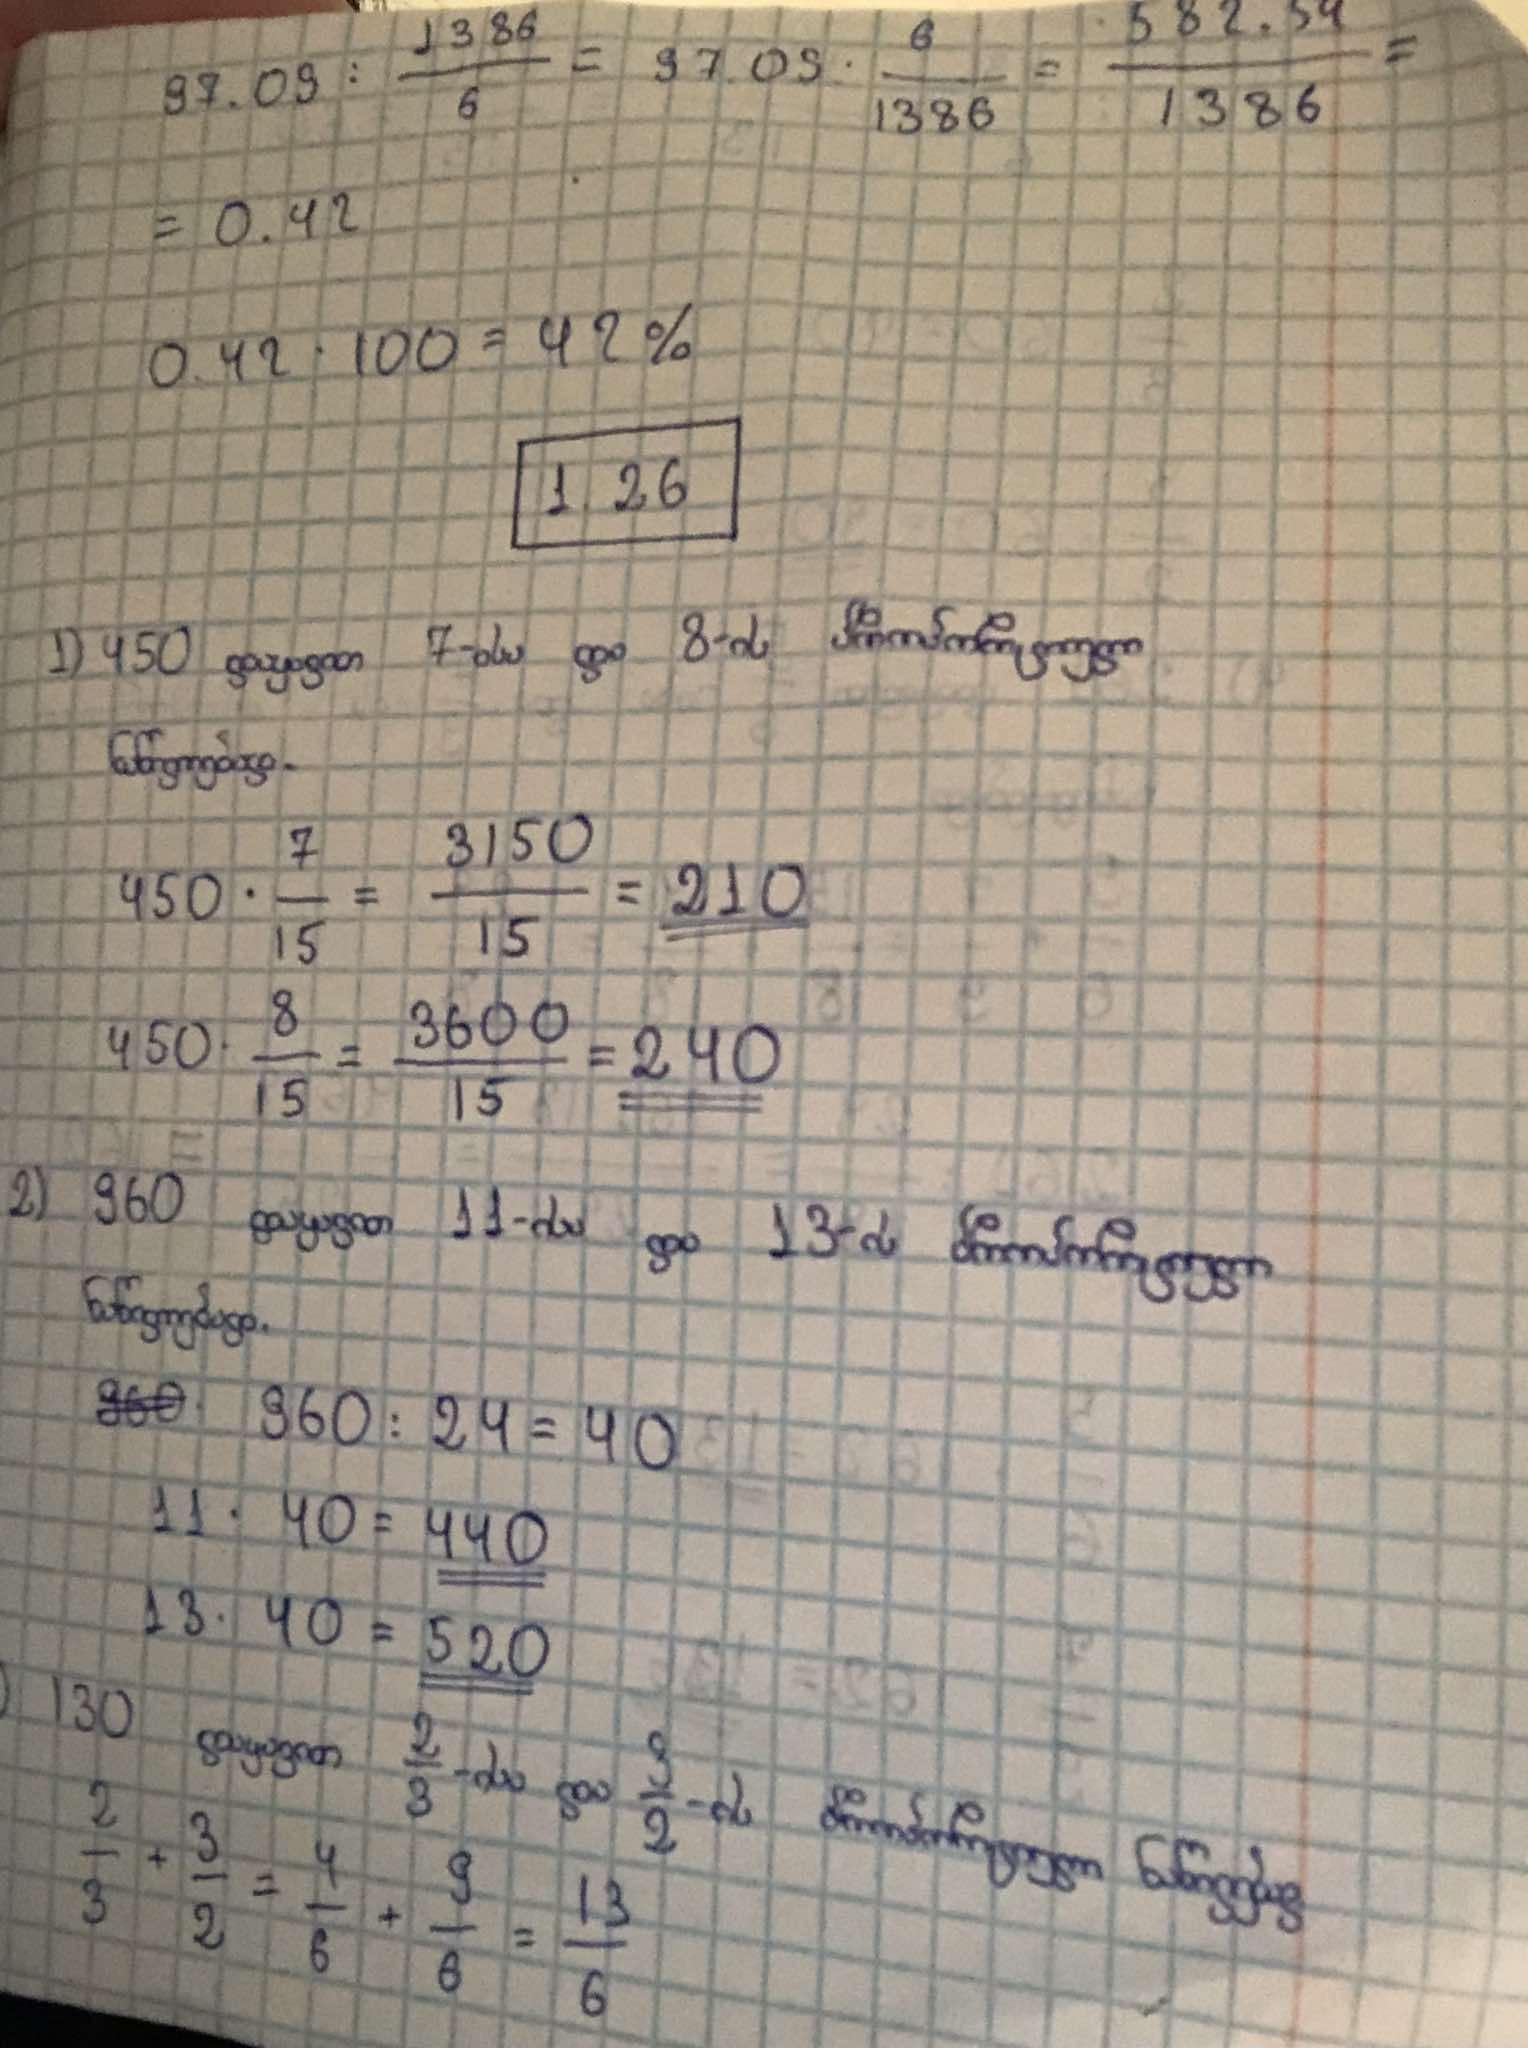 97.09 : 1386/6 = 97.09 · 6/1386 = 582.54/1386 =
= 0.42
0.42 · 100 = 42%
1.26
1) 450 დაყავით 7-ისა და 8-ის პროპორციული
ნაწილებად.
450 · 7/15 = 3150/15 = 210
450 · 8/15 = 3600/15 = 240
2) 960 დაყავით 11-ისა და 13-ის პროპორციული
ნაწილებად.
960 · 960 : 24 = 40
11 · 40 = 440
13 · 40 = 520
) 130 დაყავით 2/3-ისა და 3/2-ის პროპორციული ნაწილებად
2/3 + 3/2 = 4/6 + 9/6 = 13/6